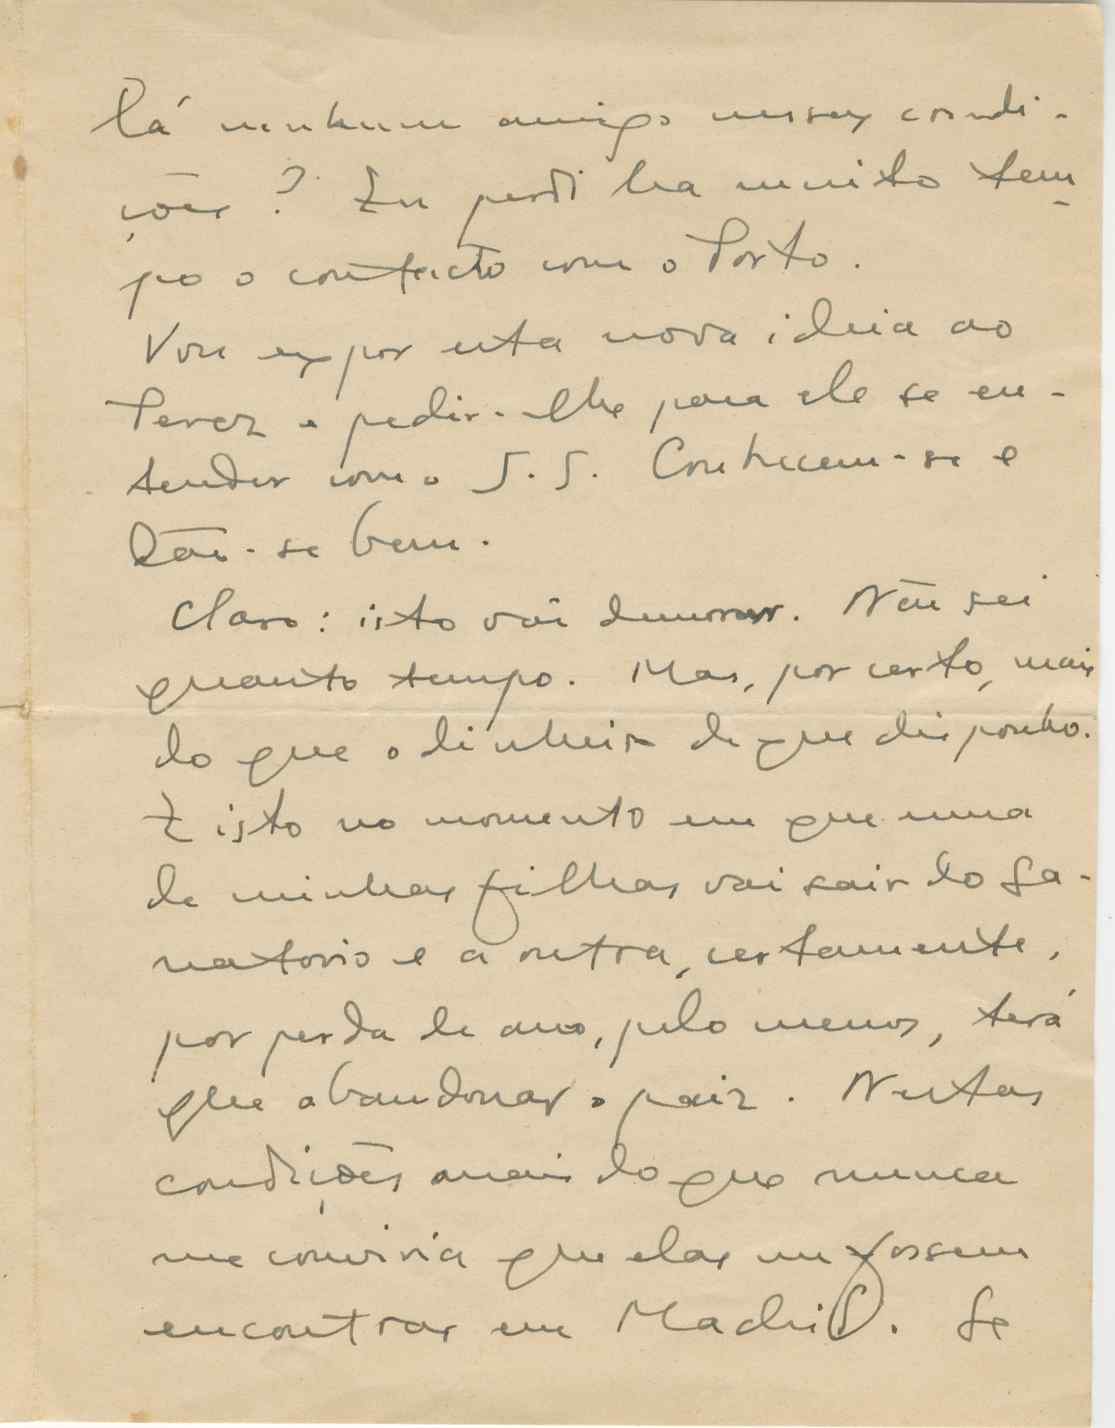 lá nenhum amigo nessas condi-
ções? Eu perdi ha muito tem-
po o contacto com o Porto.
Vou expor esta nova ideia ao
Perez e pedir-lhe para ele se en-
tender com o J. J. Conhecem-se e
dão-se bem.
Claro: isto vai demorar. Não sei
quanto tempo. Mas, por certo, mais
do que o dinheiro de que disponho.
E isto no momento em que uma
de minhas filhas vai sair do sa-
natorio e a outra, certamente,
por perda de ano, pelo menos, terá
que abandonar o paiz. Nestas
condições mais do que nunca
me conviria que elas me fossem
encontrar em Madrid. Se